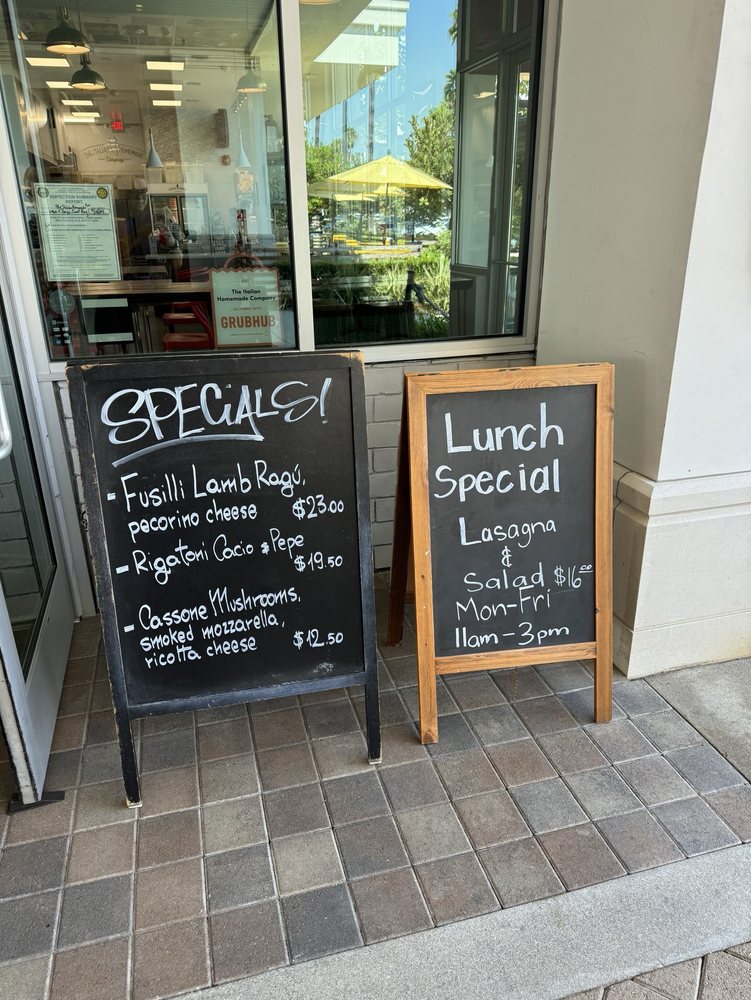 EXIT
THE ITALIAN HOMEMADE
Company
INSPECTION SUMMARY
REPORT
GET
The Italian
Homemade Company
DELIVERED WITH
GRUBHUB
SPECiALS!
- Fusilli Lamb Ragú,
pecorino cheese $23.00
- Rigatoni Cacio & Pepe
$19.50
- Cassone Mushrooms,
smoked mozzarella,
ricotta cheese $12.50
Lunch
Special
Lasagna
&
Salad $16.00
Mon-Fri
11am-3pm